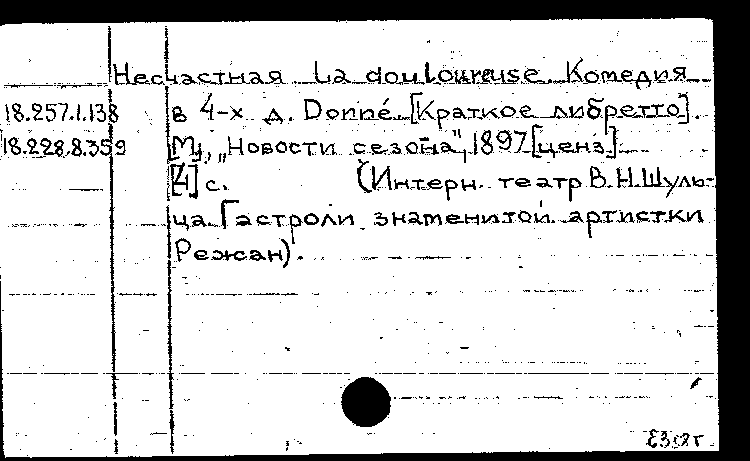 Несчастная La douloureuse. Комедия
18.257.1.138 в 4-х д. Donné. [Краткое либретто].
18.228.8.359 [М], „Новости сезона", 1897 [ценз].
[4] с. (Интерн. театр В.Н.Шуль-
ца. Гастроли знаменитой артистки
Режан).